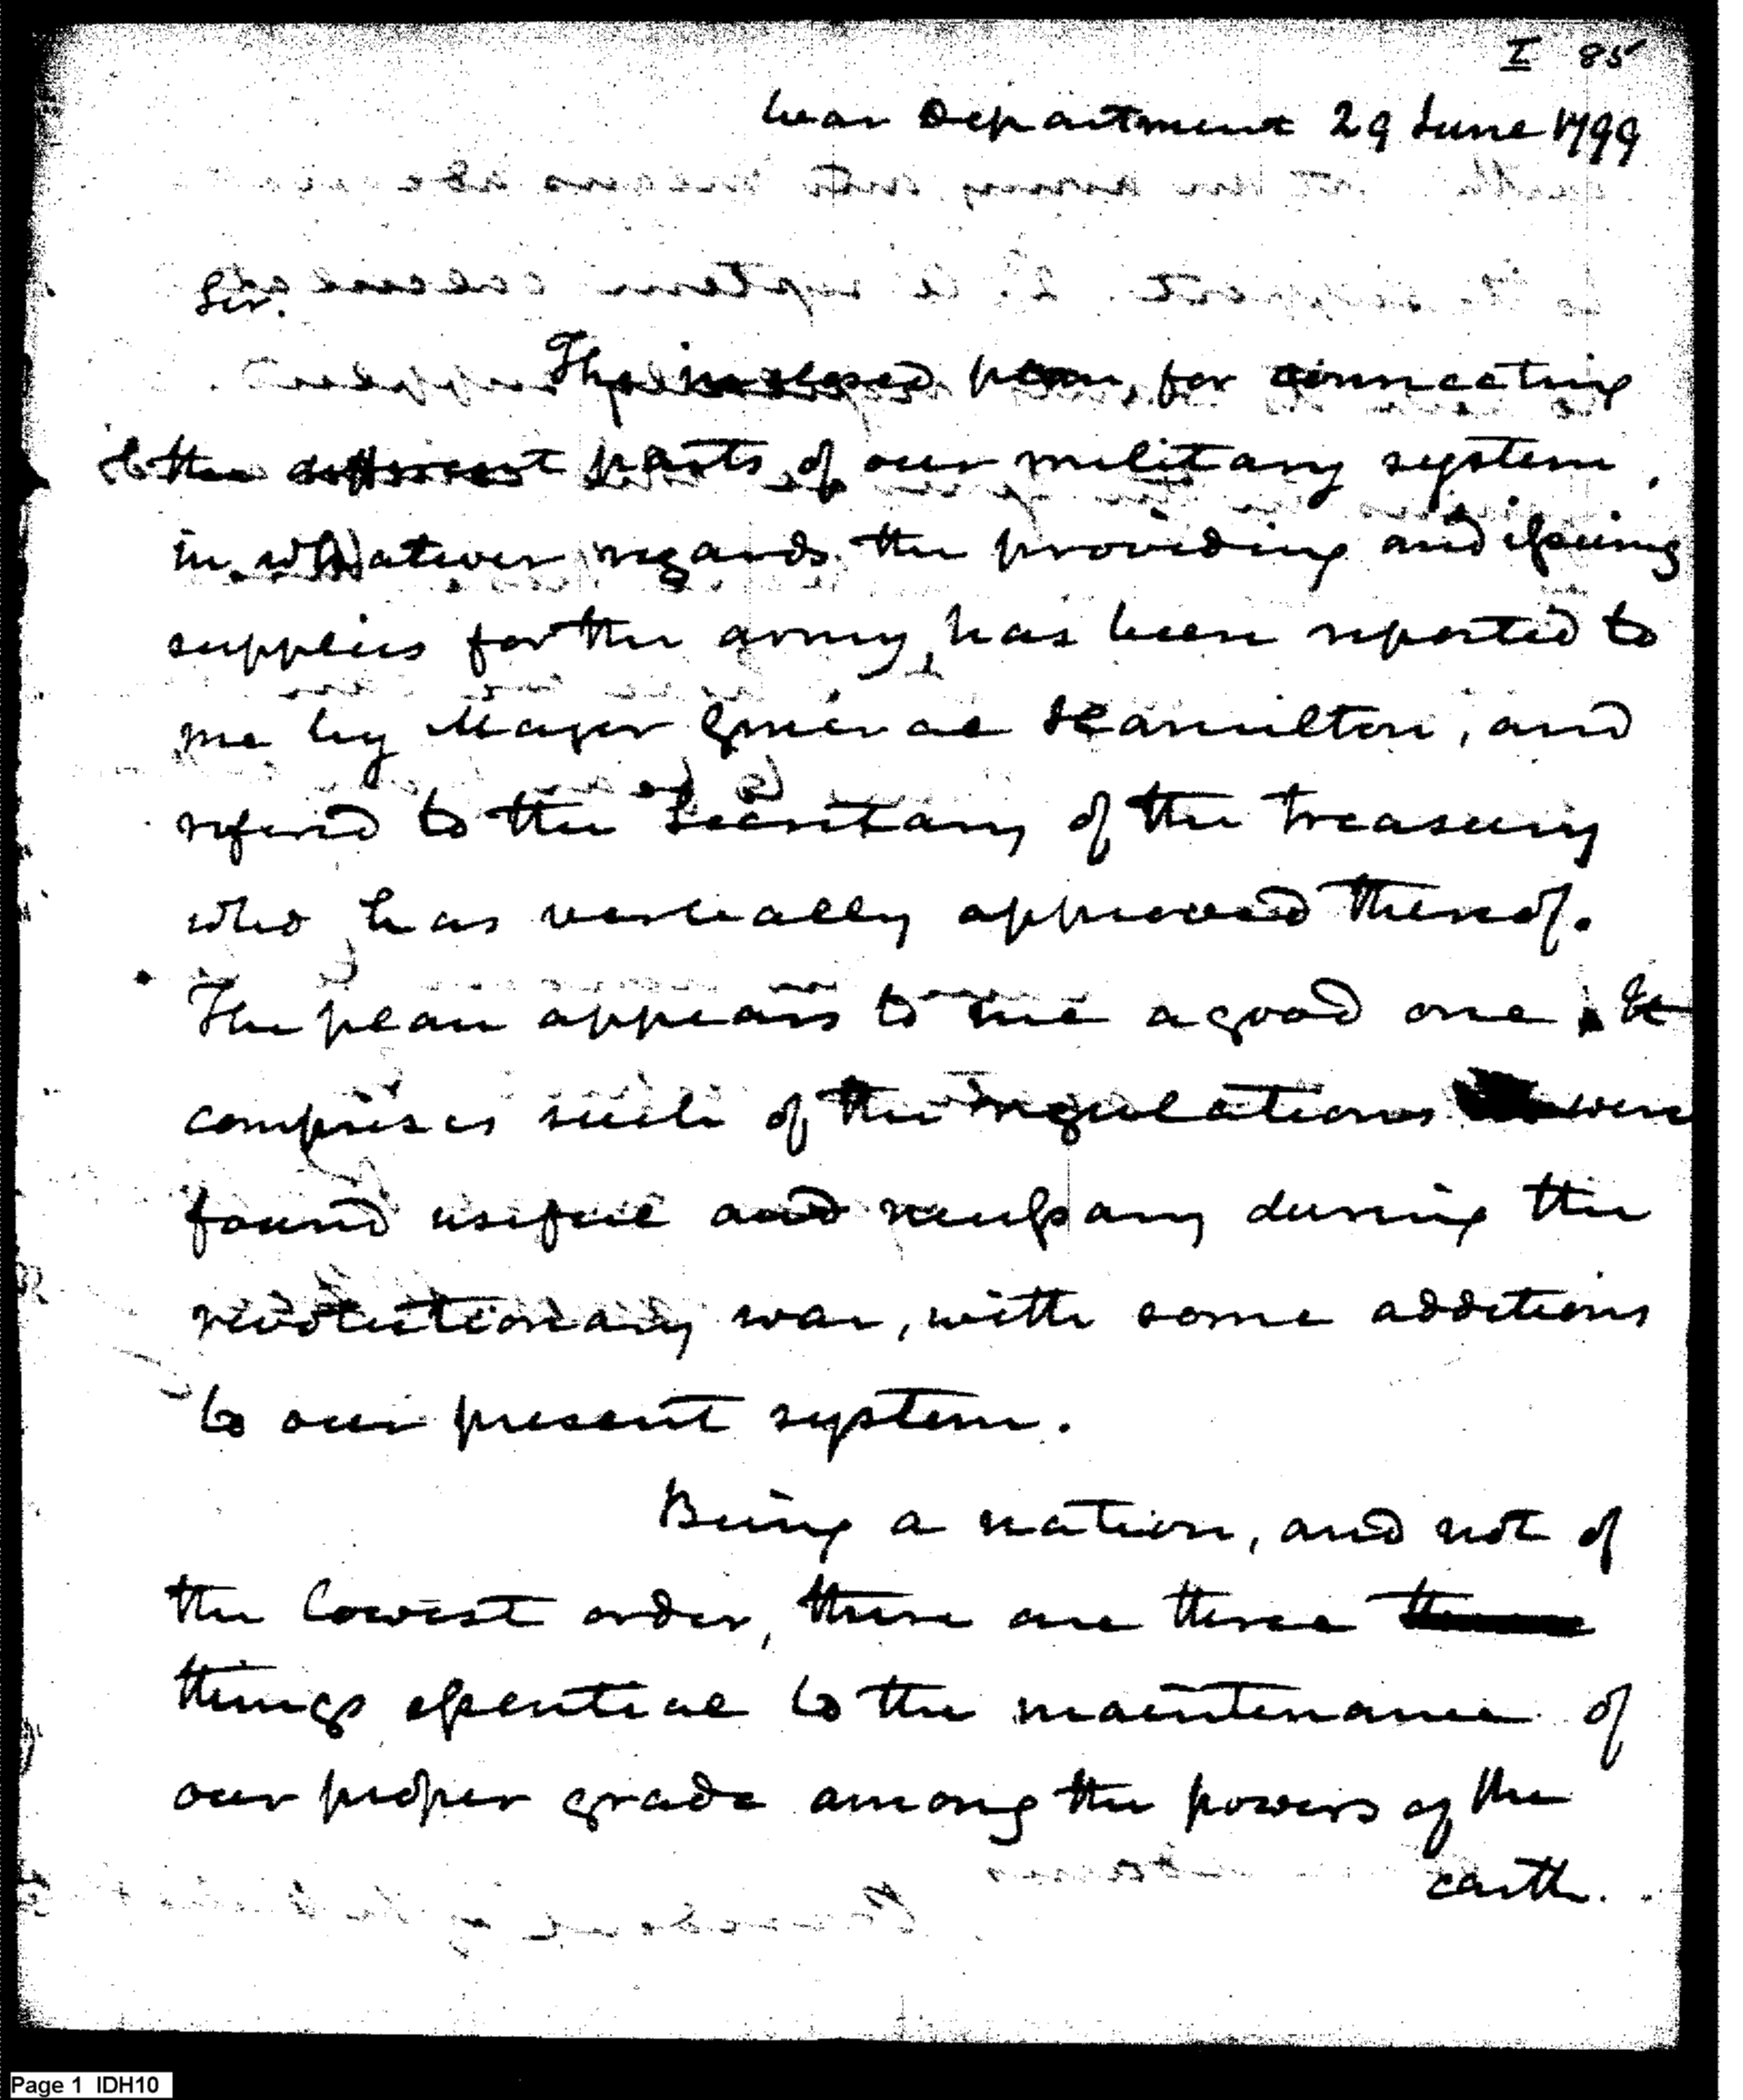 I 85
War Department 29 June 1799
Sir.
The inclosed plan, for connecting
the different parts of our military system,
in whatever regards the providing and issuing
supplies for the army, has been reported to
me by Major General Hamilton, and
refered to the Secretary of the Treasury
who has verbally approved thereof.
The plan appears to me a good one. It
comprises such of the regulations were
found useful and necessary during the
revolutionary war, with some additions
to our present system.
Being a nation, and not of
the lowest order, there are three
things essential to the maintenance of
our proper grade among the powers of the
earth.
Page 1 IDH10